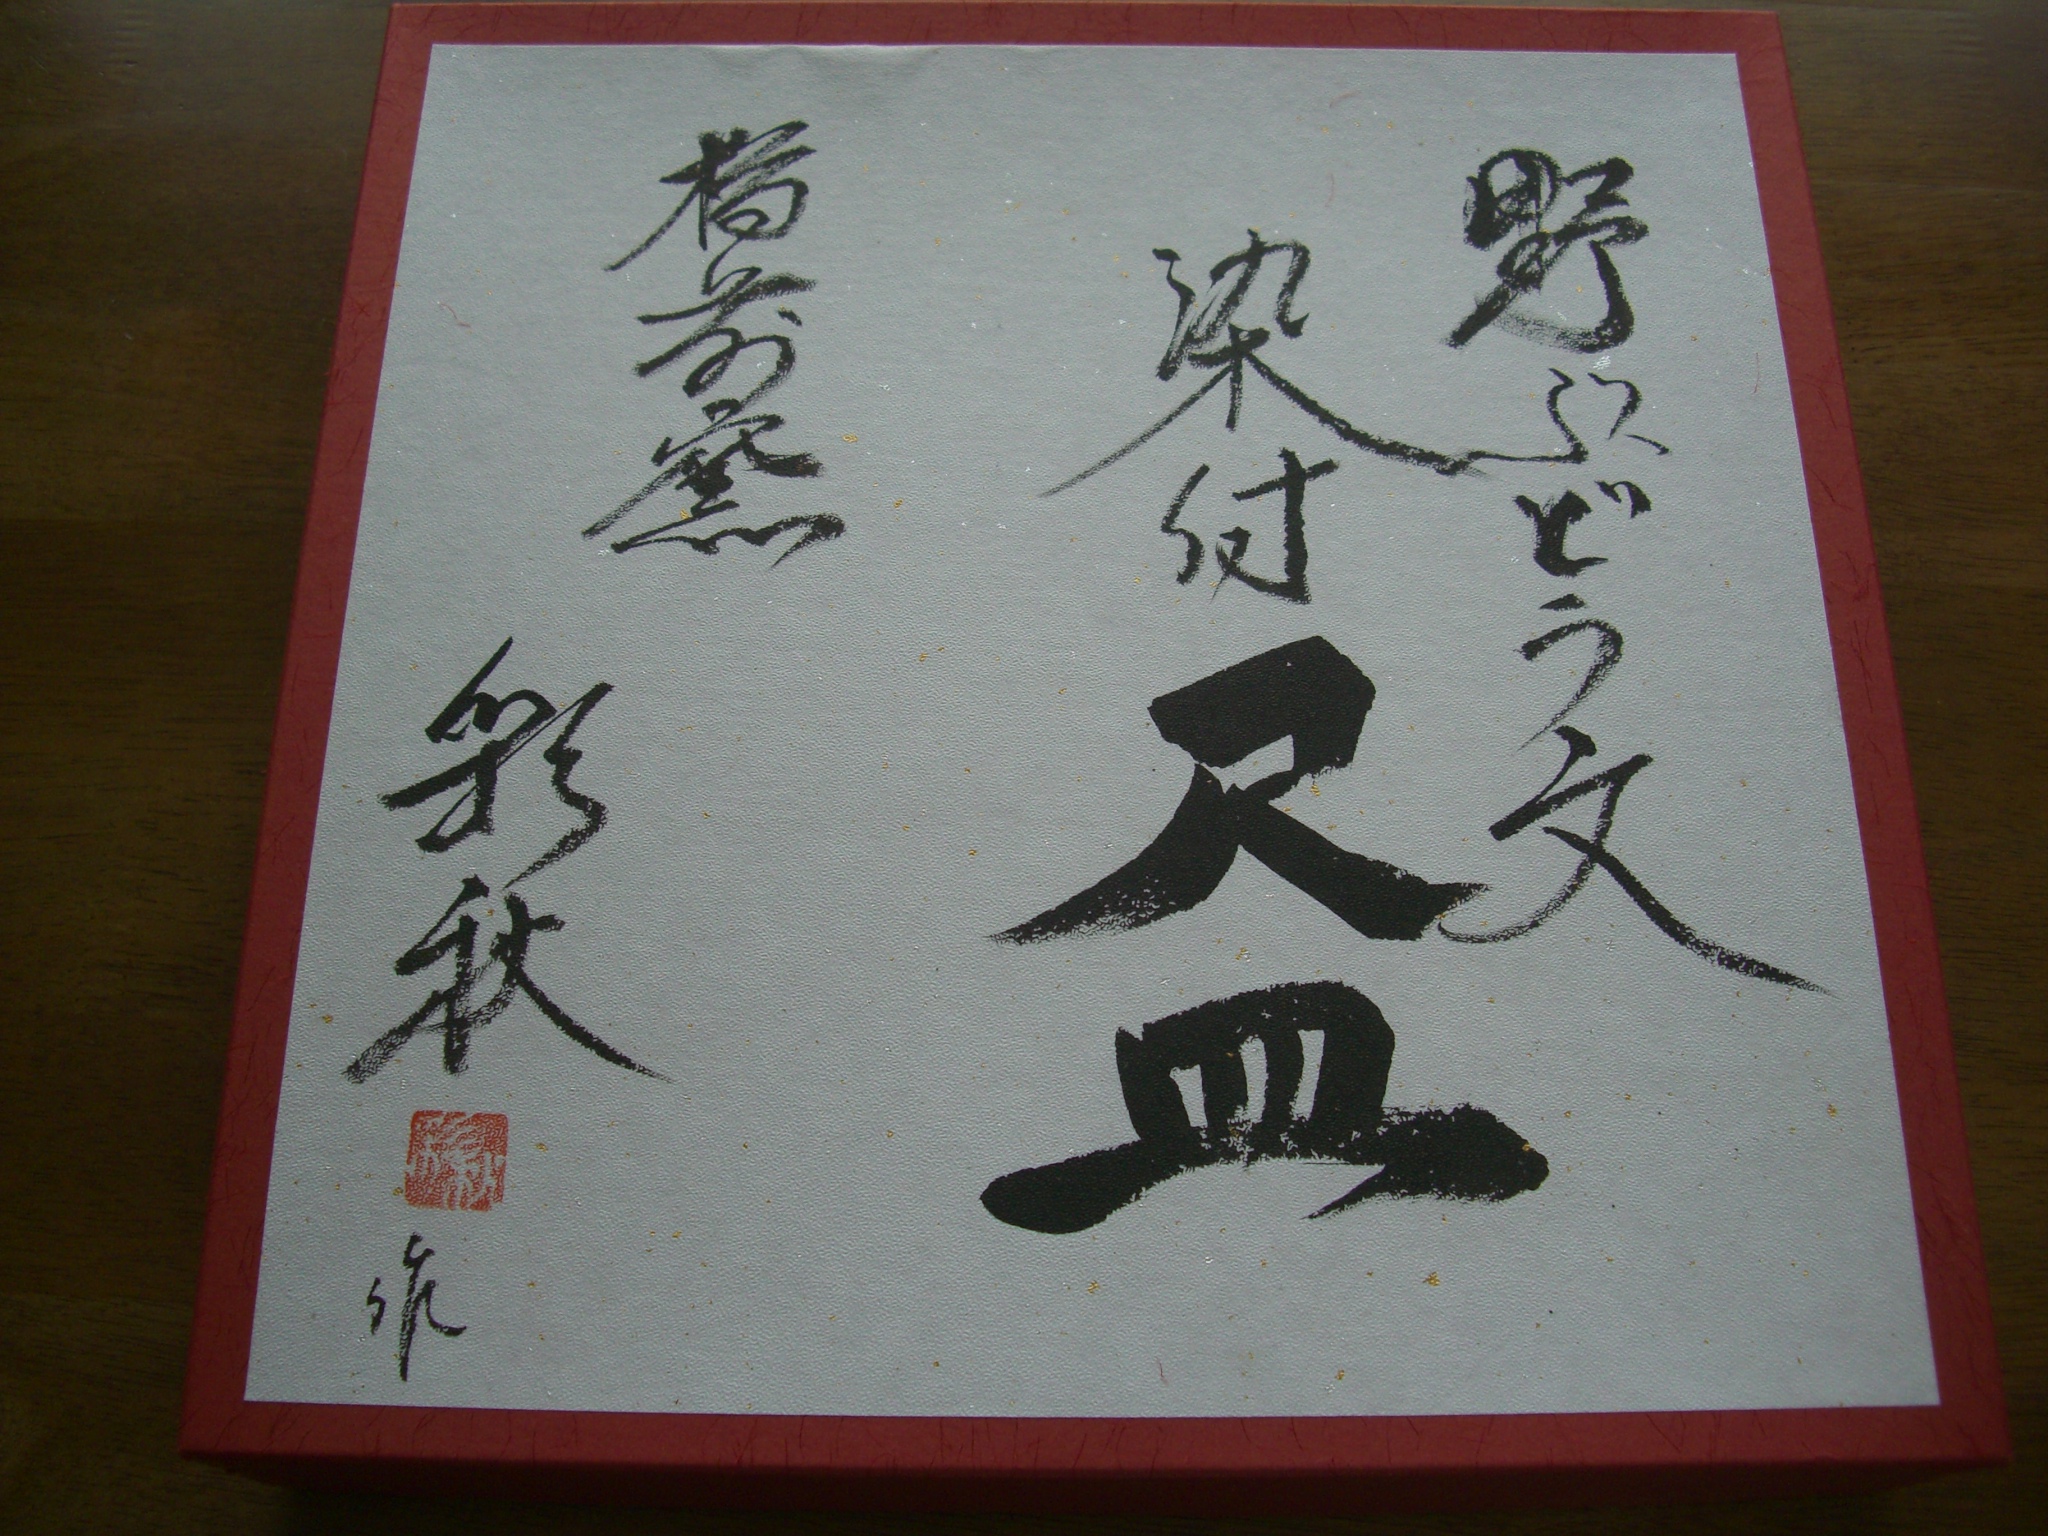 野ぶどう文
染付 尺皿
橋前窯
彩秋 作